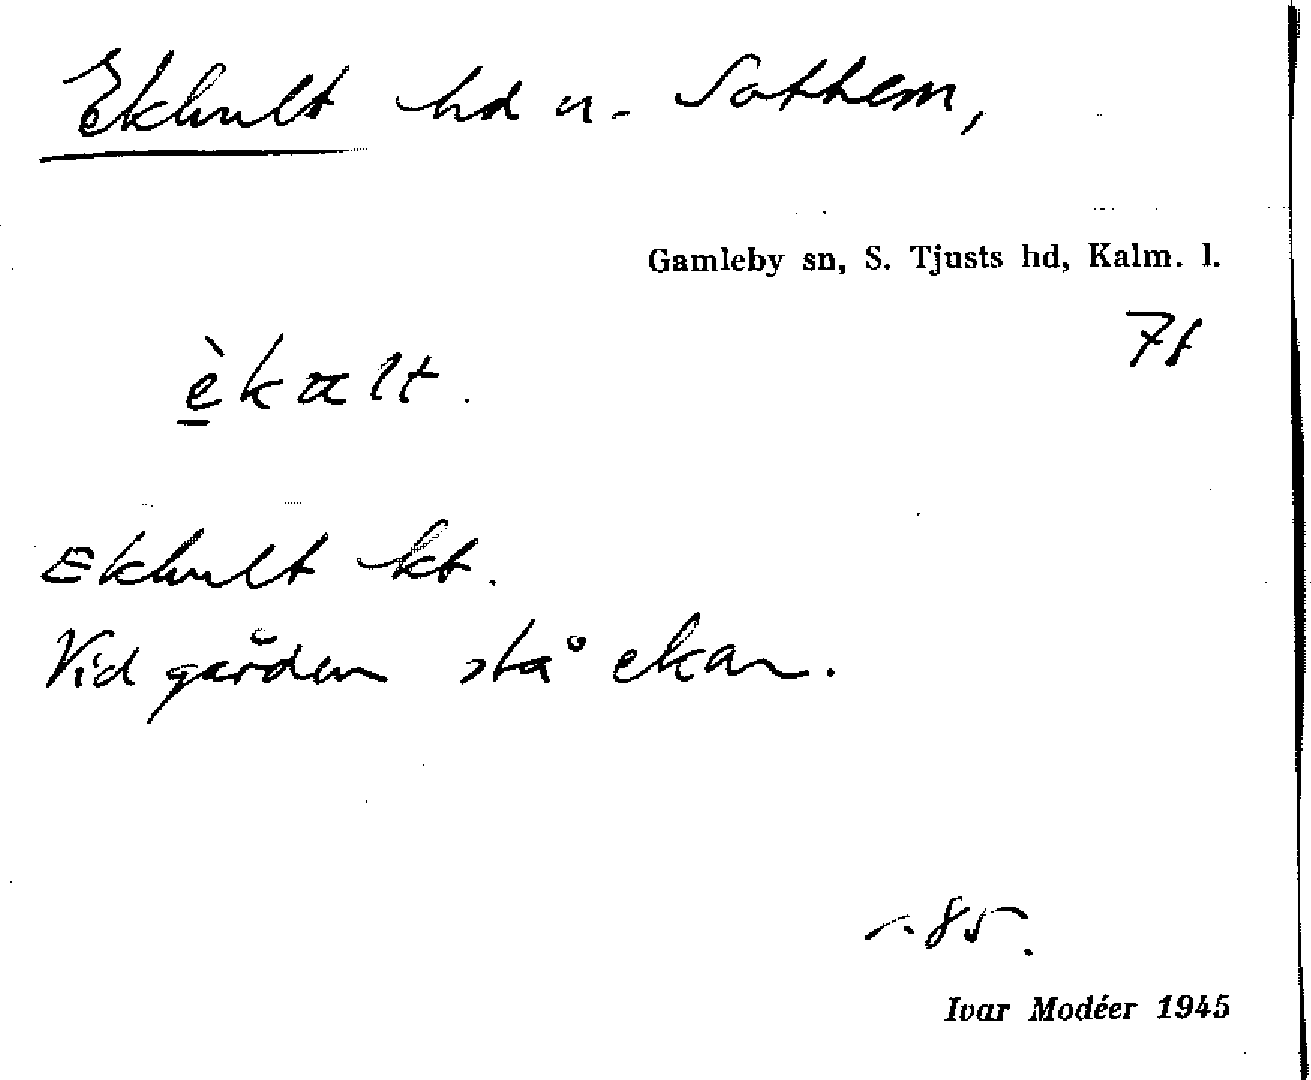 Ekhult hd u. Sothem,
Gamleby sn, S. Tjusts hd, Kalm. l.
7f
èkalt.
Ekhult kt.
Vid gården stå ekar.
s. 85.
Ivar Modéer 1945